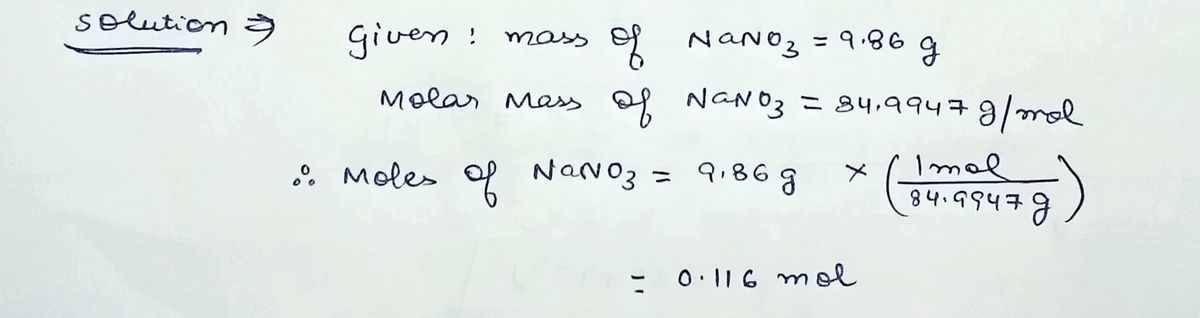 solution ⇒ given : mass of NaNO₃ = 9.86 g
Molar Mass of NaNO₃ = 84.9947 g/mol
∴ Moles of NaNO₃ = 9.86 g × (1 mol / 84.9947 g)
= 0.116 mol